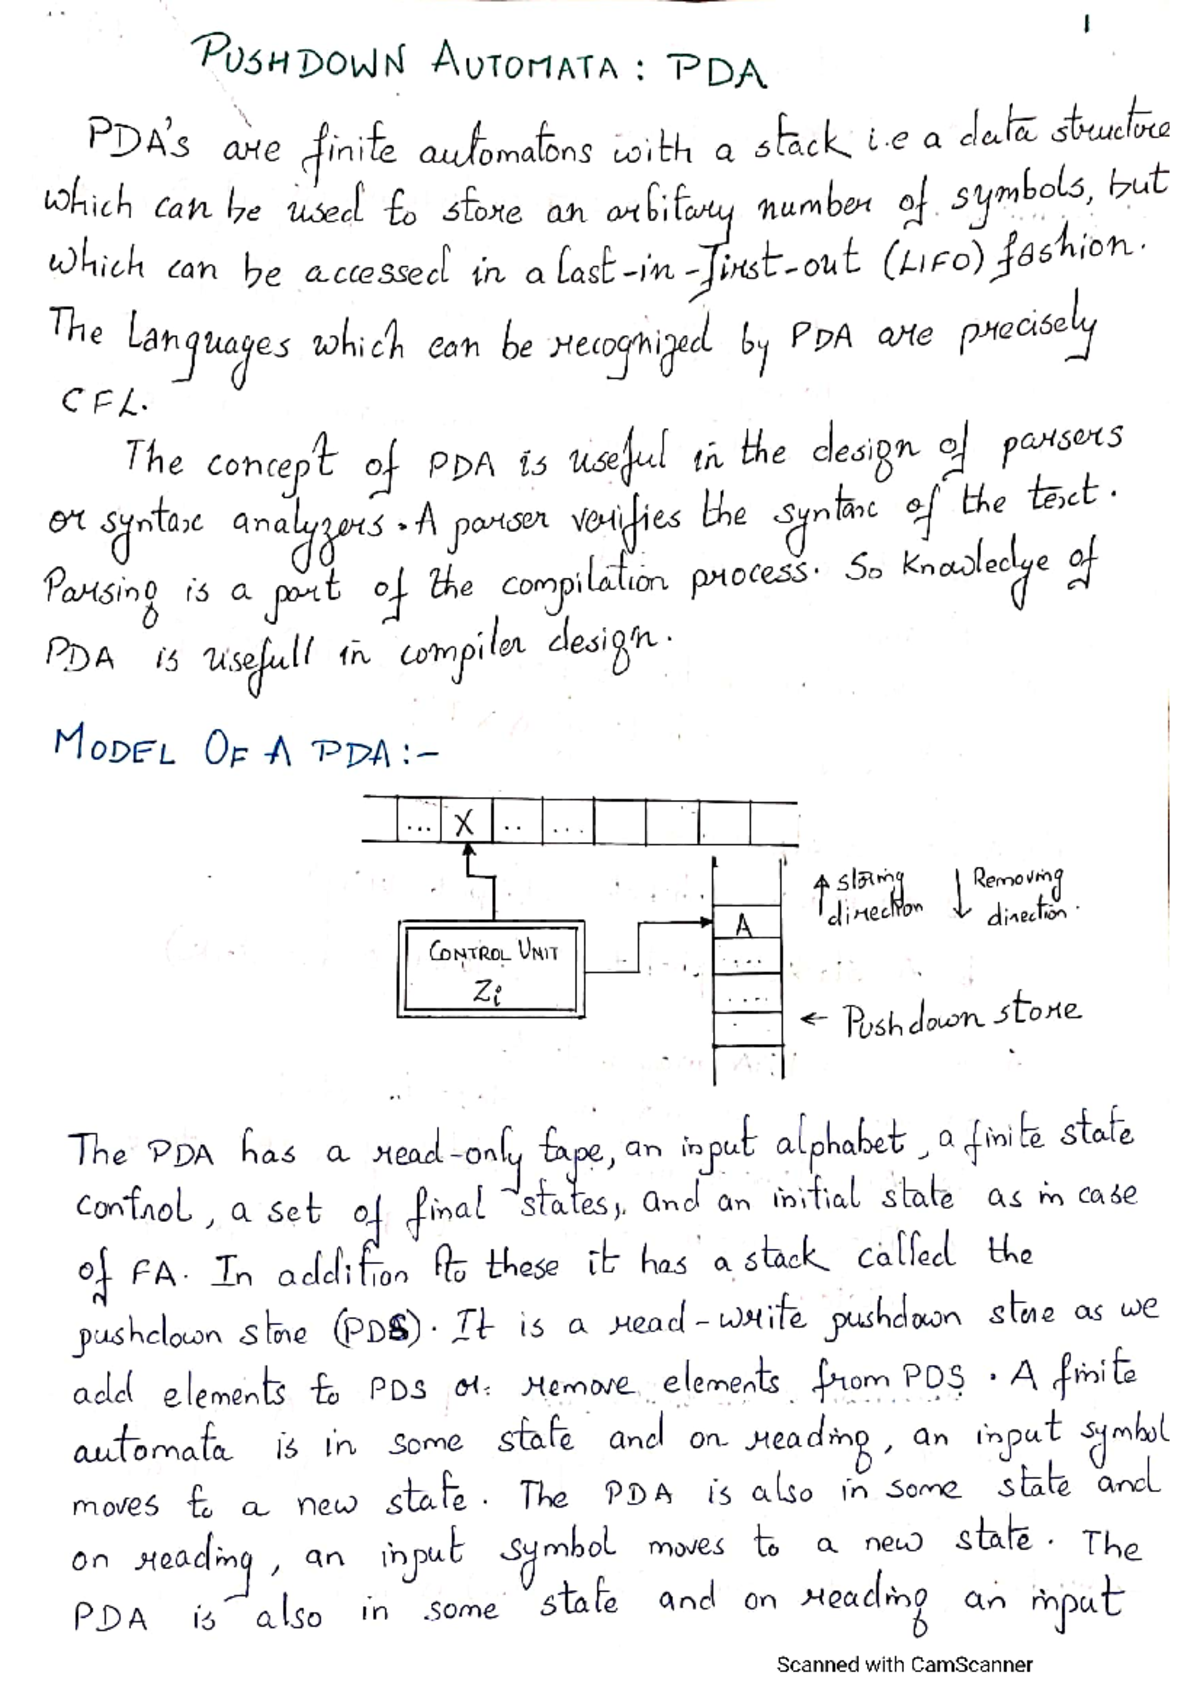 1
PUSHDOWN AUTOMATA : PDA
PDA's are finite automatons with a stack i.e a data structure
which can be used to store an arbitary number of symbols, but
which can be accessed in a last-in-first-out (LIFO) fashion.
The Languages which can be recognized by PDA are precisely
CFL.
The concept of PDA is useful in the design of parsers
or syntax analyzers. A parser verifies the syntax of the text.
Parsing is a part of the compilation process. So Knowledge of
PDA is usefull in compiler design.
MODEL OF A PDA :-
... X .. ...
↑ storing direction
↓ Removing direction.
A
CONTROL UNIT
Zi
....
....
← Pushdown store
The PDA has a read-only tape, an input alphabet, a finite state
control, a set of final states, and an initial state as in case
of FA. In addition to these it has a stack called the
pushdown store (PDS). It is a read-write pushdown store as we
add elements to PDS or remove elements from PDS. A finite
automata is in some state and on reading, an input symbol
moves to a new state. The PDA is also in some state and
on reading, an input symbol moves to a new state. The
PDA is also in some state and on reading an input
Scanned with CamScanner